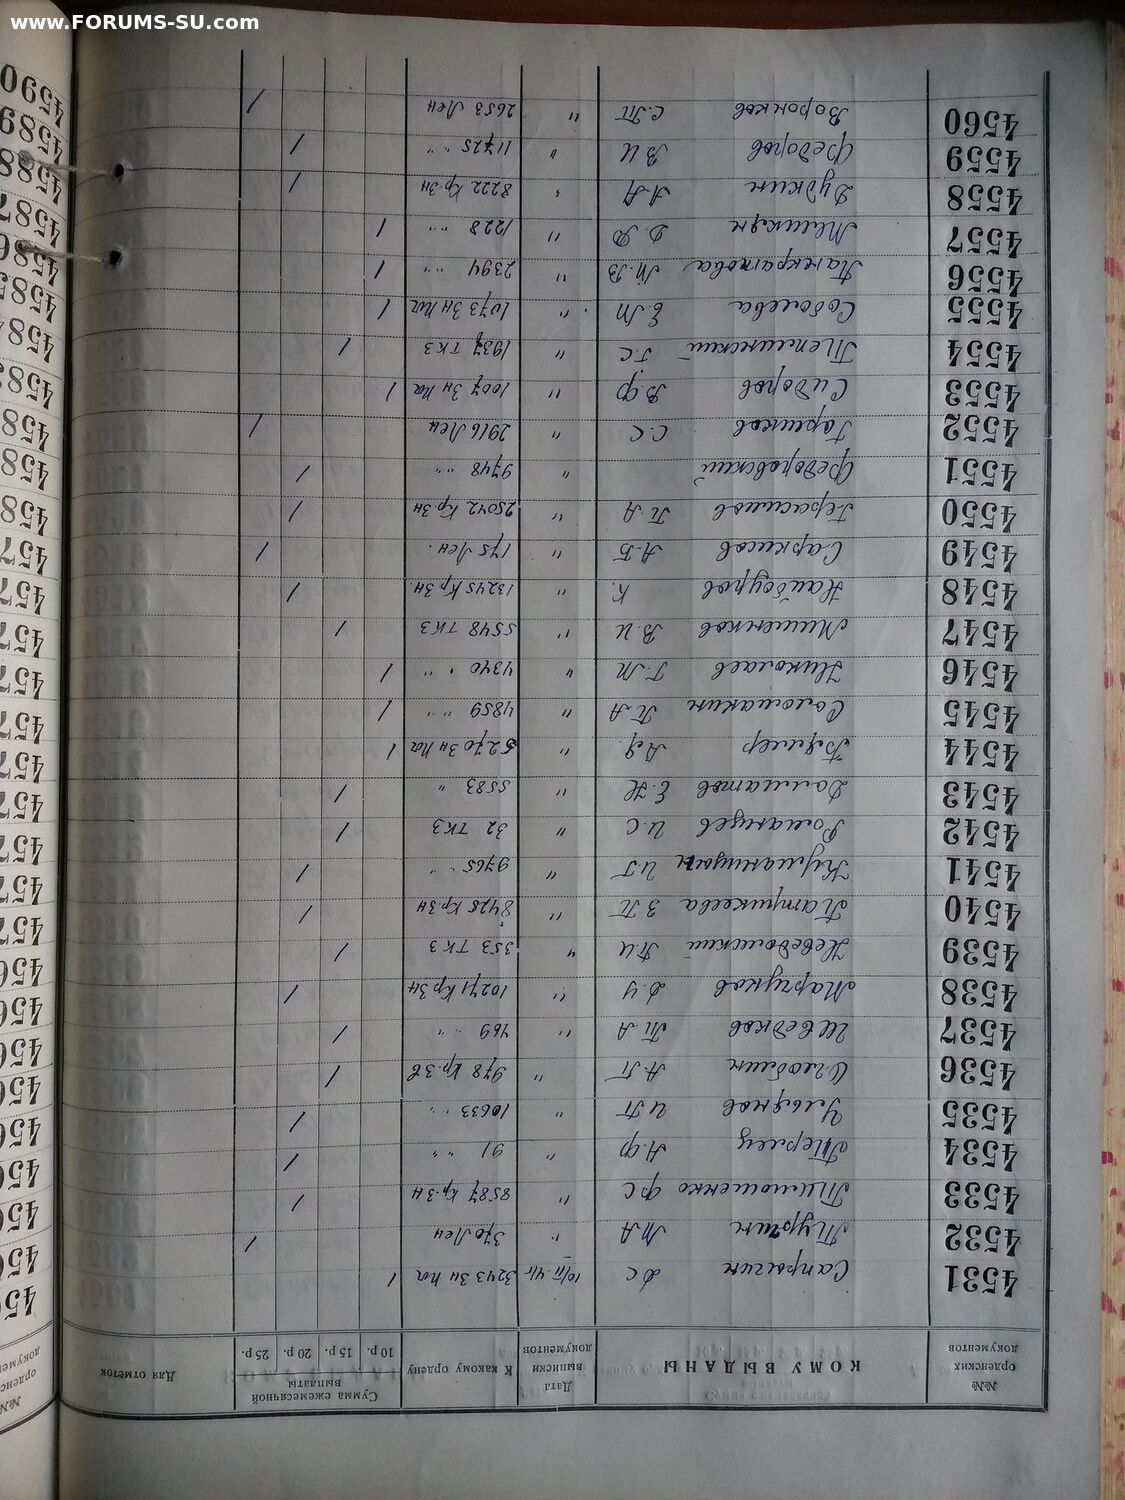 www.FORUMS-SU.com
№№ орденских документов
КОМУ ВЫДАНЫ
Дата выписки документов
К какому ордену
Сумма ежемесячной выплаты
10 р. 15 р. 20 р. 25 р.
Для отметок
4531 Сапрыгин Д С 3243 Зн па /
4532 Турчин М А " 370 Лен /
4533 Тимошенко Ф С " 8587 Кр.Зн /
4534 А Ф " 91 " " /
4535 Ульянов И П " 10633 " " /
4536 А П " 978 Кр.Зв /
4537 Шведков П А " 469 " " /
4538 Марчуков Д У " 10271 Кр Зн /
4539 Неведомский П И " 353 ТКЗ /
4540 Патрикеева З П " 8425 Кр.Зн /
4541 И Г " 9765 " " /
4542 Романцев И С " 32 ТКЗ /
4543 Долматов Е Н " 5583 " /
4544 А Я. " 5270 Зн па /
4545 Соломакин П А " 4859 " " /
4546 Николаев Г М " 4340 " " /
4547 Мишенков В И " 5548 ТКЗ /
4548 К. " 13245 Кр.Зн. /
4549 Саркисов А Б " 175 Лен. /
4550 Герасимов П А " 25042 Кр.Зн /
4551 Федоровский " 9748 " " /
4552 Горшков С С " 2916 Лен /
4553 Сидоров В Ф 1007 Зн па /
4554 Г С " 1937 ТКЗ /
4555 Соболева Е М " 1073 Зн па /
4556 Панкратова М. В " 2394 " " /
4557 " 1228 " " /
4558 Дудкин А А " 8222 Кр.Зн /
4559 Федоров В И " 11725 " " /
4560 Воронков С. П " 2653 Лен /
4590